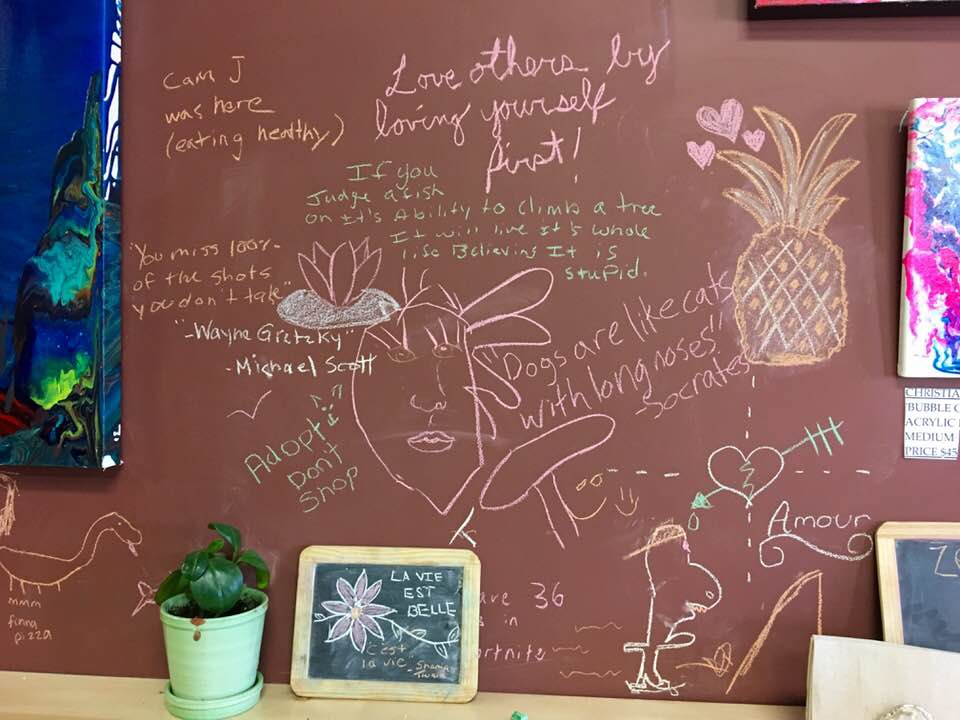 Cam J
was here
(eating healthy)
Love others by
loving yourself
first!
If you
Judge a fish
on It's Ability to climb a tree
It will live It's whole
life Believing It is
stupid.
"You miss 100%
of the shots
you don't take"
"-Wayne Gretzky"
-Michael Scott
"Dogs are like cats
with long noses"
-Socrates
Adopt
Don't
Shop
Amour
mmm
finna
pizza
LA VIE
EST
BELLE
"C'est
la vie"
-Shania
Twain
36
in
CHRISTIA
"BUBBLE G
ACRYLIC
MEDIUM
PRICE $45